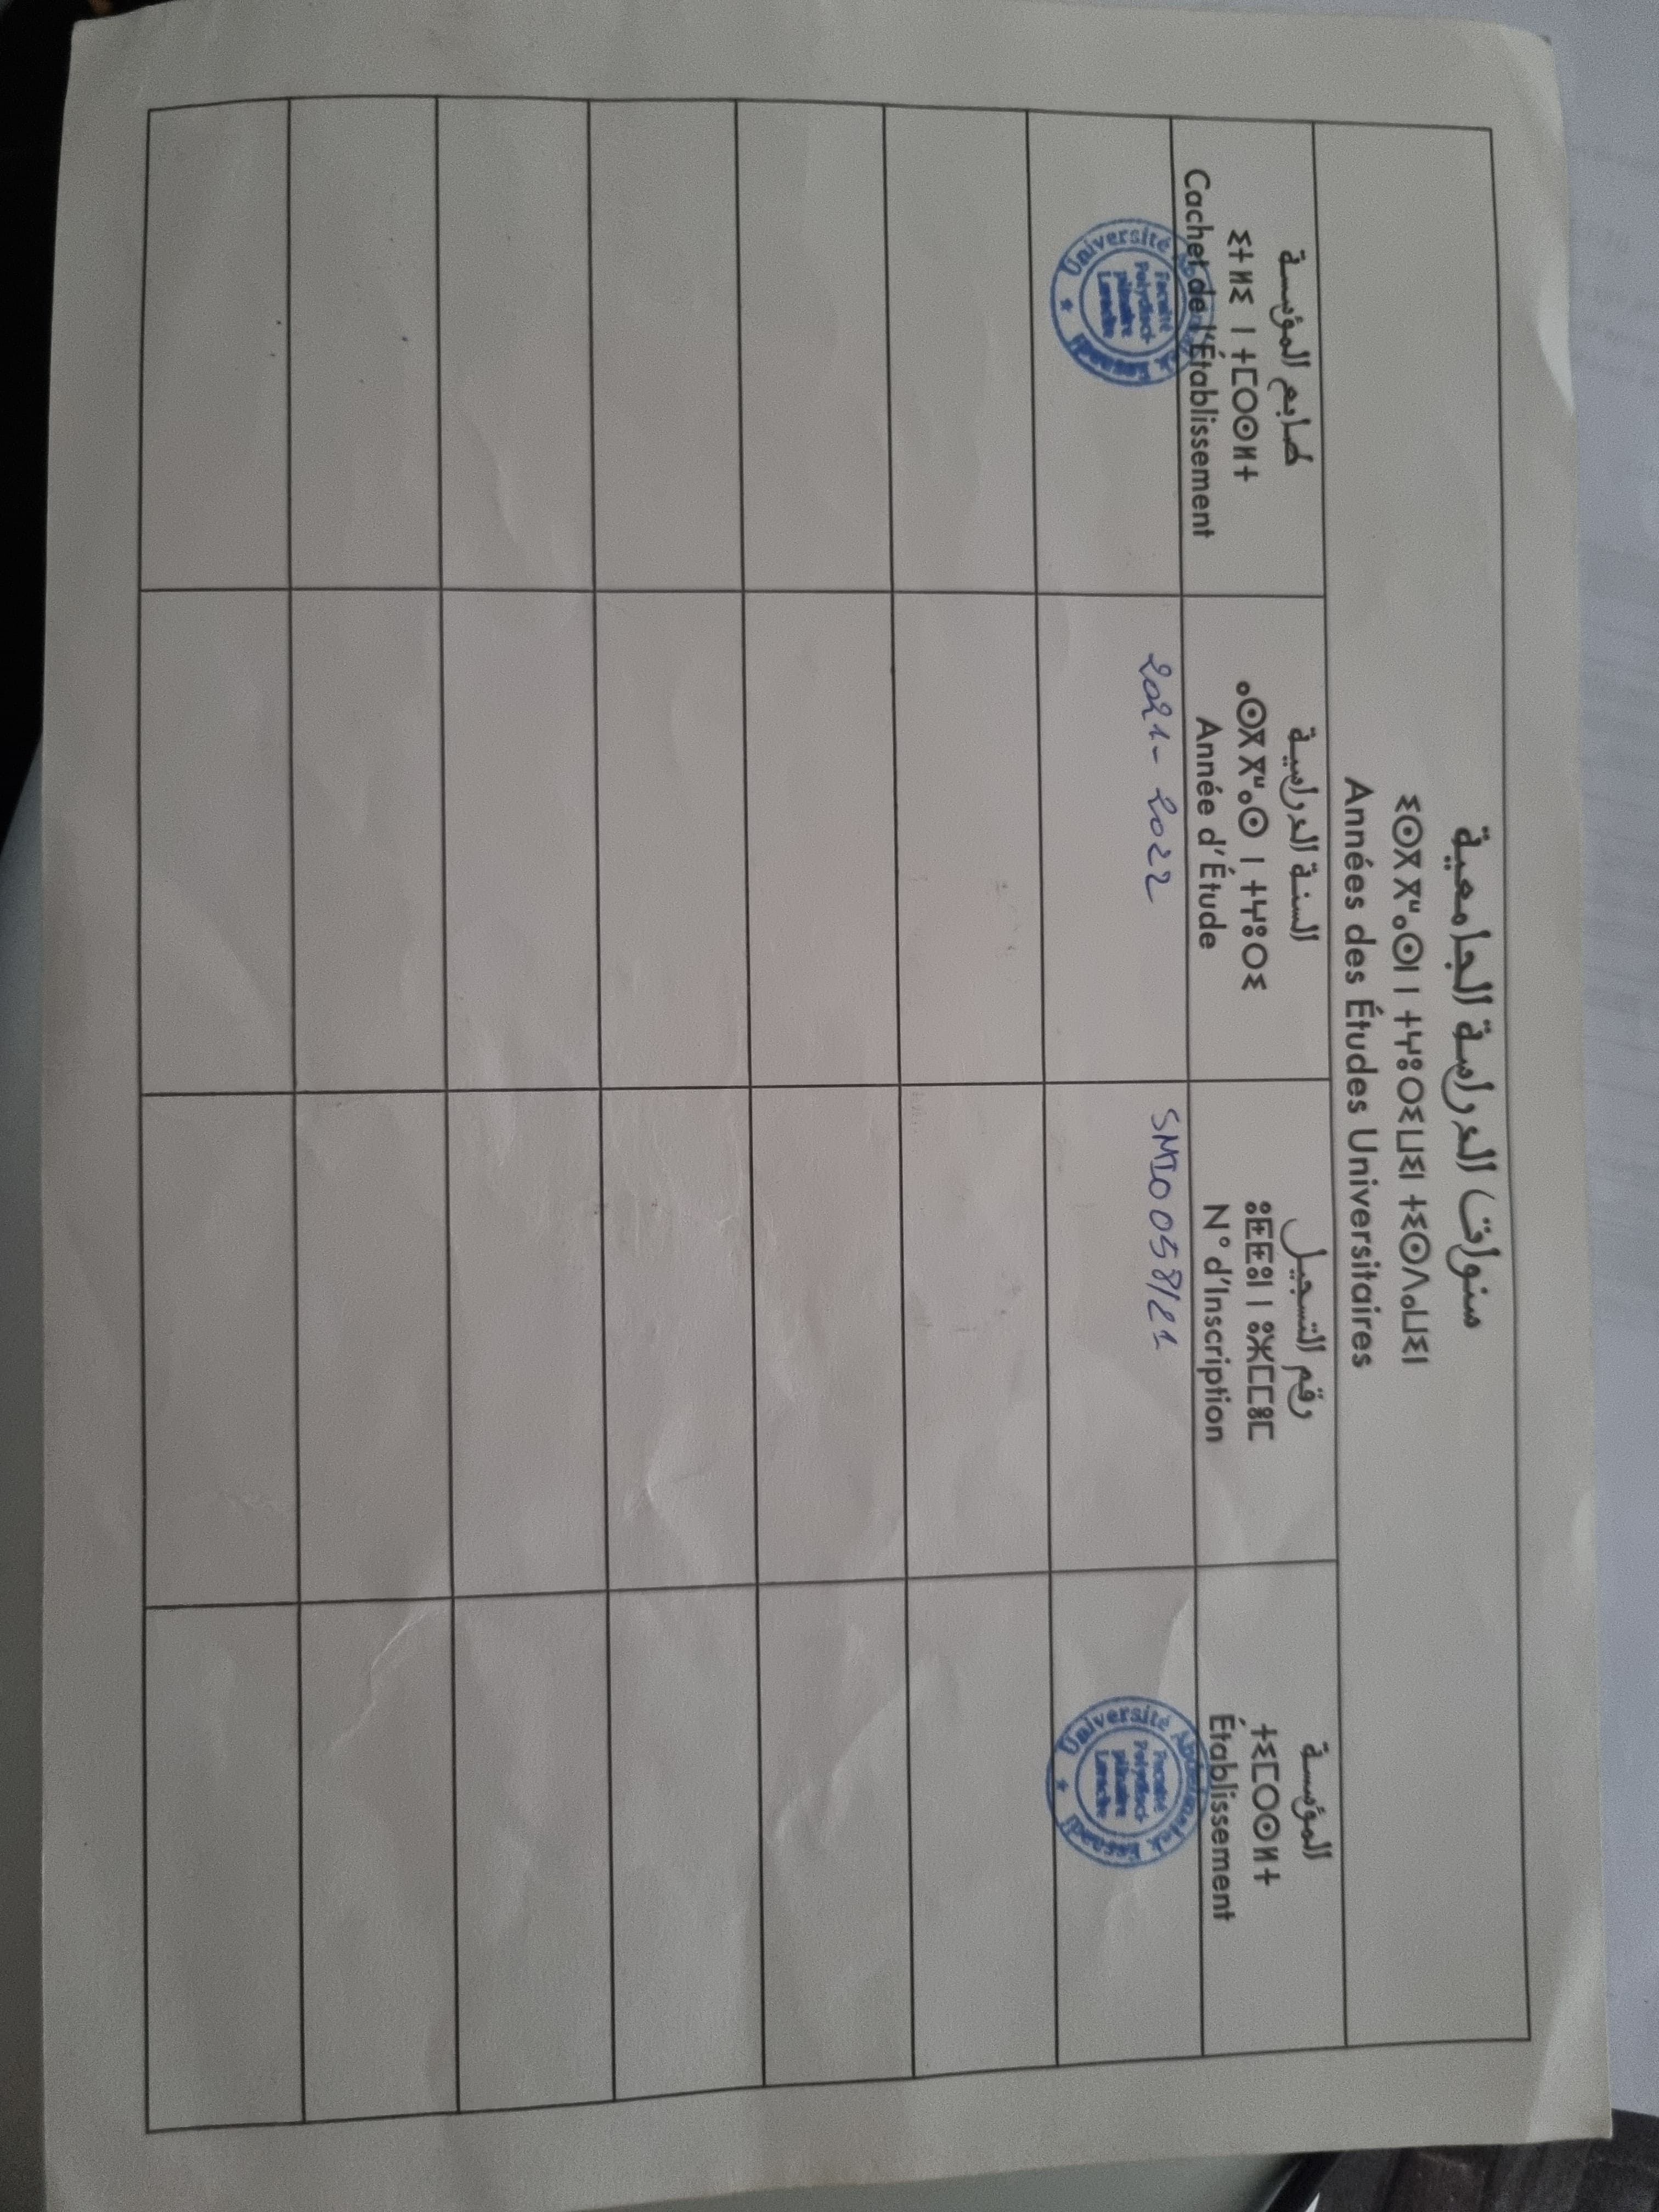 سنوات الدراسة الجامعية
ⵉⵙⴳⴳⵯⴰⵙⵏ ⵏ ⵜⵖⵓⵔⵉⵡⵉⵏ ⵜⵉⵙⴷⴰⵡⵉⵏ
Années des Études Universitaires
طابع المؤسسة
ⵉⵜⵍⵉ ⵏ ⵜⵎⵔⵙⵍⵜ
Cachet de l'Établissement
السنة الدراسية
ⴰⵙⴳⴳⵯⴰⵙ ⵏ ⵜⵖⵓⵔⵉ
Année d'Étude
رقم التسجيل
ⵓⵟⵟⵓⵏ ⵏ ⵓⵣⵎⵎⵓⵎ
N° d'Inscription
المؤسسة
ⵜⵉⵎⵔⵙⵍⵜ
Établissement
Université Abdelmalek Essaadi
Faculté
Polydisci-
plinaire
Larache
2021-2022
SMI0058/21
Université Abdelmalek Essaadi
Faculté
Polydisci-
plinaire
Larache